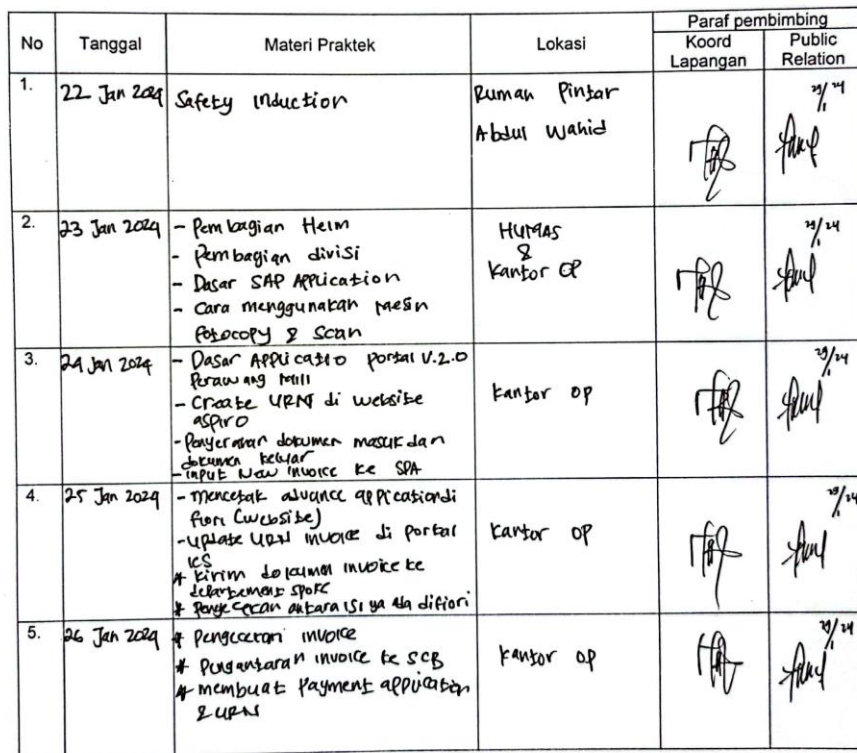 No Tanggal Materi Praktek Lokasi Paraf pembimbing
Koord Lapangan Public Relation
1. 22 Jan 2024 Safety Induction Rumah Pintar
Abdul Wahid
29/1 24
2. 23 Jan 2024 - Pembagian Helm HUMAS
- Pembagian divisi &
- Dasar SAP Application Kantor OP
- Cara menggunakan mesin
fotocopy & scan
29/1 24
3. 24 Jan 2024 - Dasar Applicatio portal V.2.0
Perawang Mill
- Create URN di website Kantor OP
aspiro
- Penyerahan dokumen masuk dan
dokumen keluar
- input New invoice ke SPA
29/1 24
4. 25 Jan 2024 - Mencetak advance application di
fiori (website)
- Update URN invoice di portal Kantor OP
ICS
* Kirim dokumen invoice ke
departement
* Pengecekan antara isi difiori
29/1 24
5. 26 Jan 2024 * Pengecekan invoice
* Pengantaran invoice ke SCB Kantor OP
* membuat Payment application
& URN
29/1 24